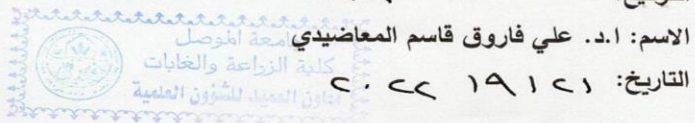 الاسم: ا.د. علي فاروق قاسم المعاضيدي
التاريخ: ٢١ ١٩ ٢٠٢٢
جامعة الموصل
كلية الزراعة والغابات
معاون العميد للشؤون العلمية